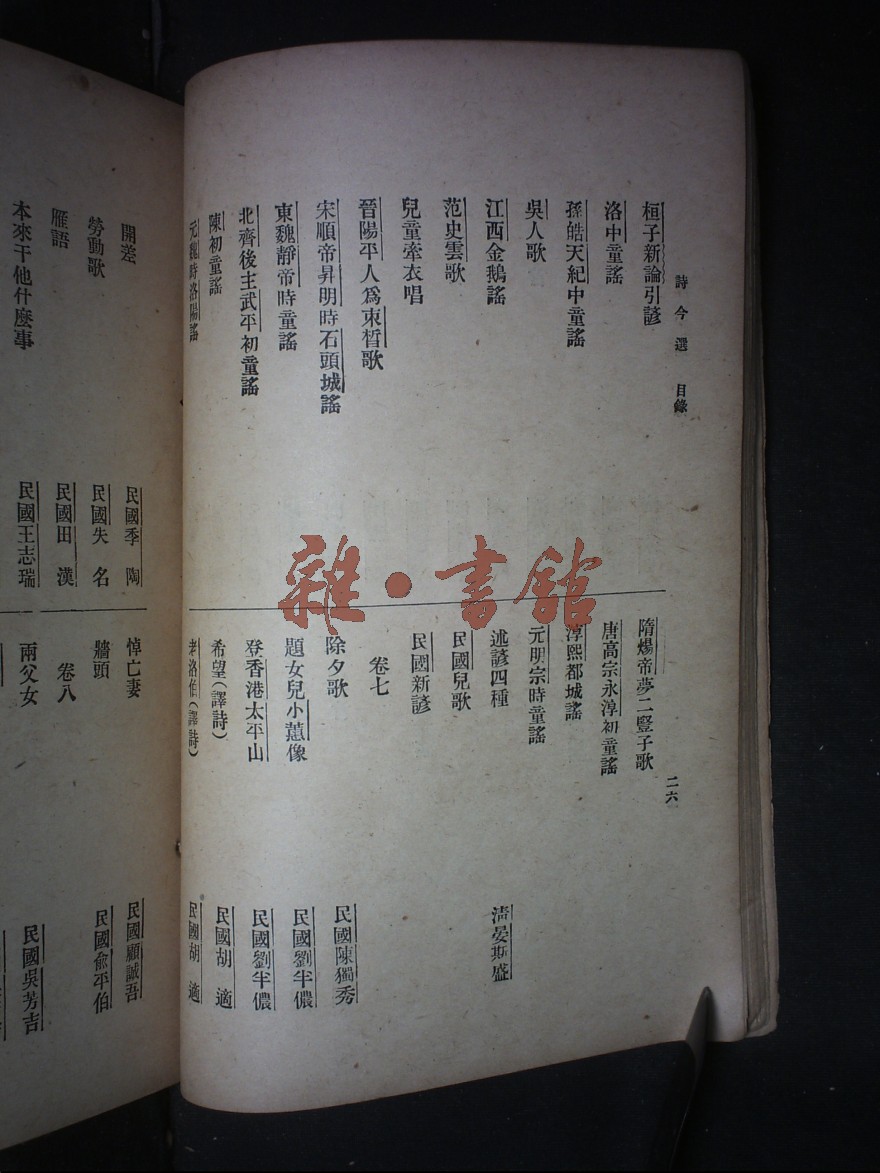 詩今選 目錄
二六
桓子新論引諺
洛中童謠
孫皓天紀中童謠
吳人歌
江西金鵝謠
范史雲歌
兒童牽衣唱
晉陽平人爲束皙歌
宋順帝昇明時石頭城謠
東魏靜帝時童謠
北齊後主武平初童謠
陳初童謠
元魏時洛陽謠
隋煬帝夢二豎子歌
唐高宗永淳初童謠
淳熙都城謠
元明宗時童謠
述諺四種 清晏斯盛
民國兒歌
民國新諺
卷七
除夕歌 民國陳獨秀
題女兒小蕙像 民國劉半儂
登香港太平山 民國劉半儂
希望(譯詩) 民國胡適
老洛伯(譯詩) 民國胡適
開差 民國季陶
勞動歌 民國失名
雁語 民國田漢
本來干他什麼事 民國王志瑞
悼亡妻 民國顧誠吾
牆頭 民國俞平伯
卷八
兩父女 民國吳芳吉
雜·書館